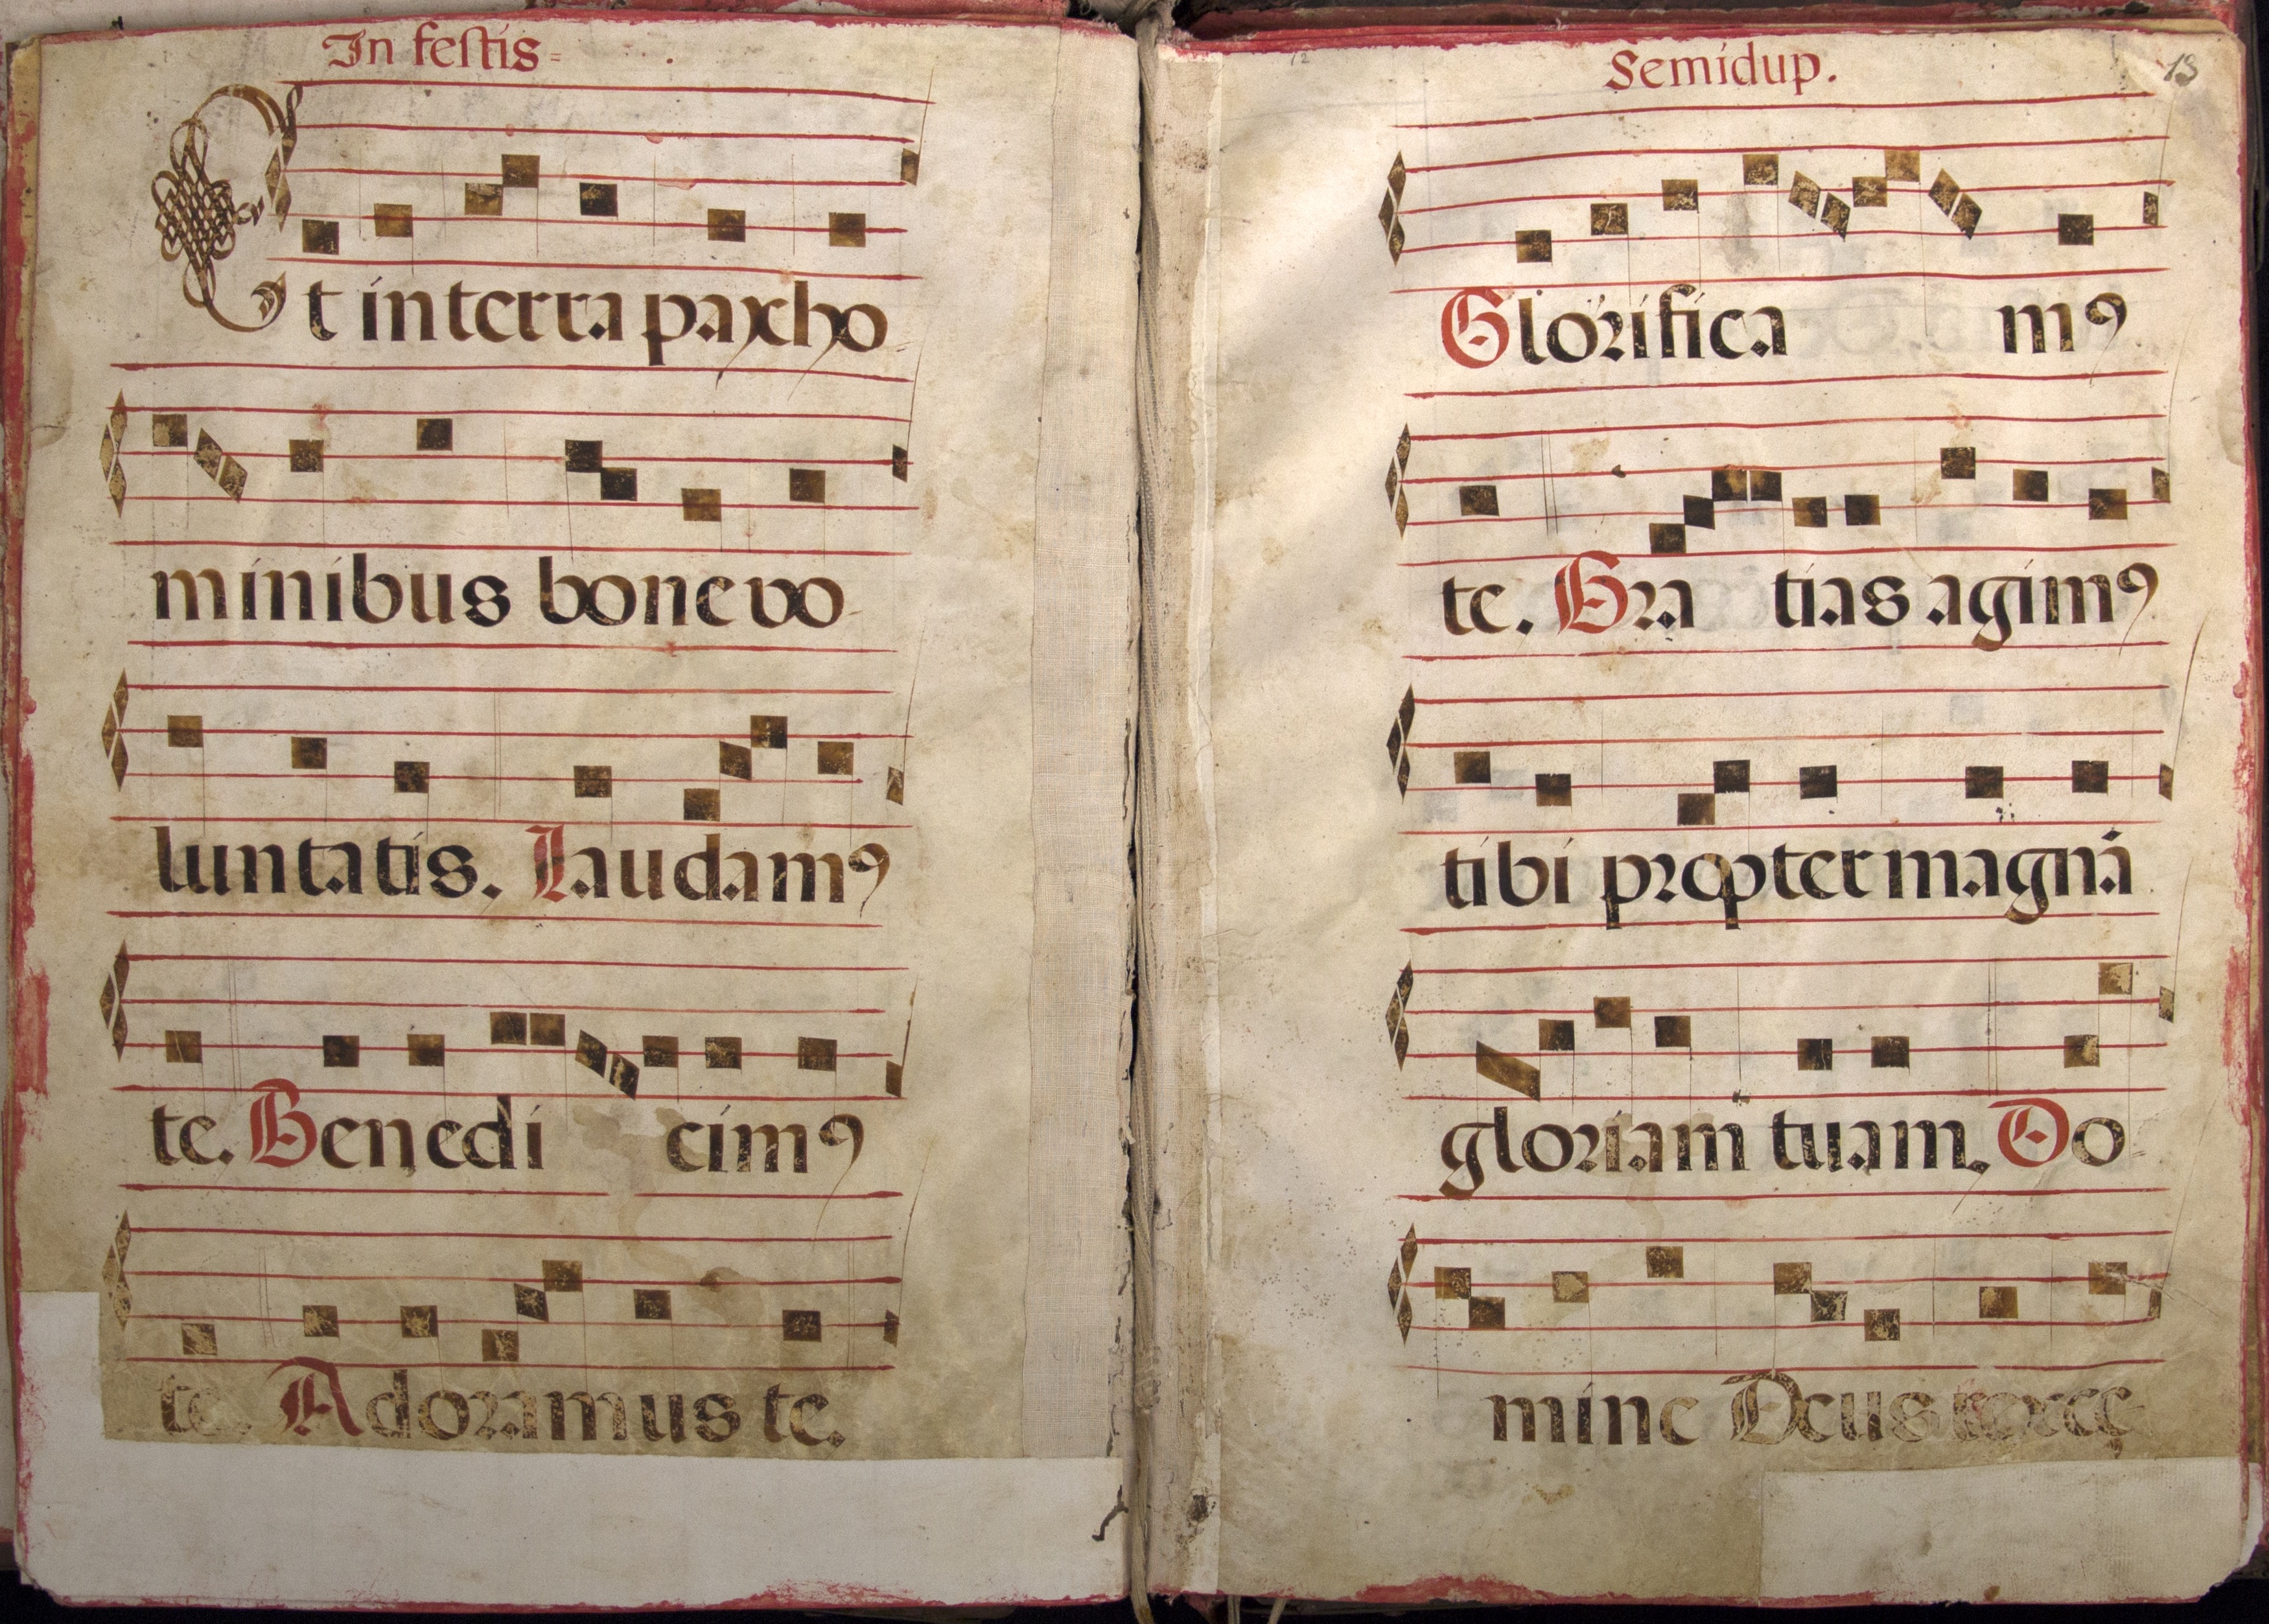 In festis=
Et in terra pax ho-
minibus bone vo-
luntatis. Laudamꝰ
te. Benedi cimꝰ
te. Adoramus te.
Semidup.
13
Glorifica mꝰ
te. Gra tias agimꝰ
tibi propter magnā
gloriam tuam. Do-
mine Deus rex cę-